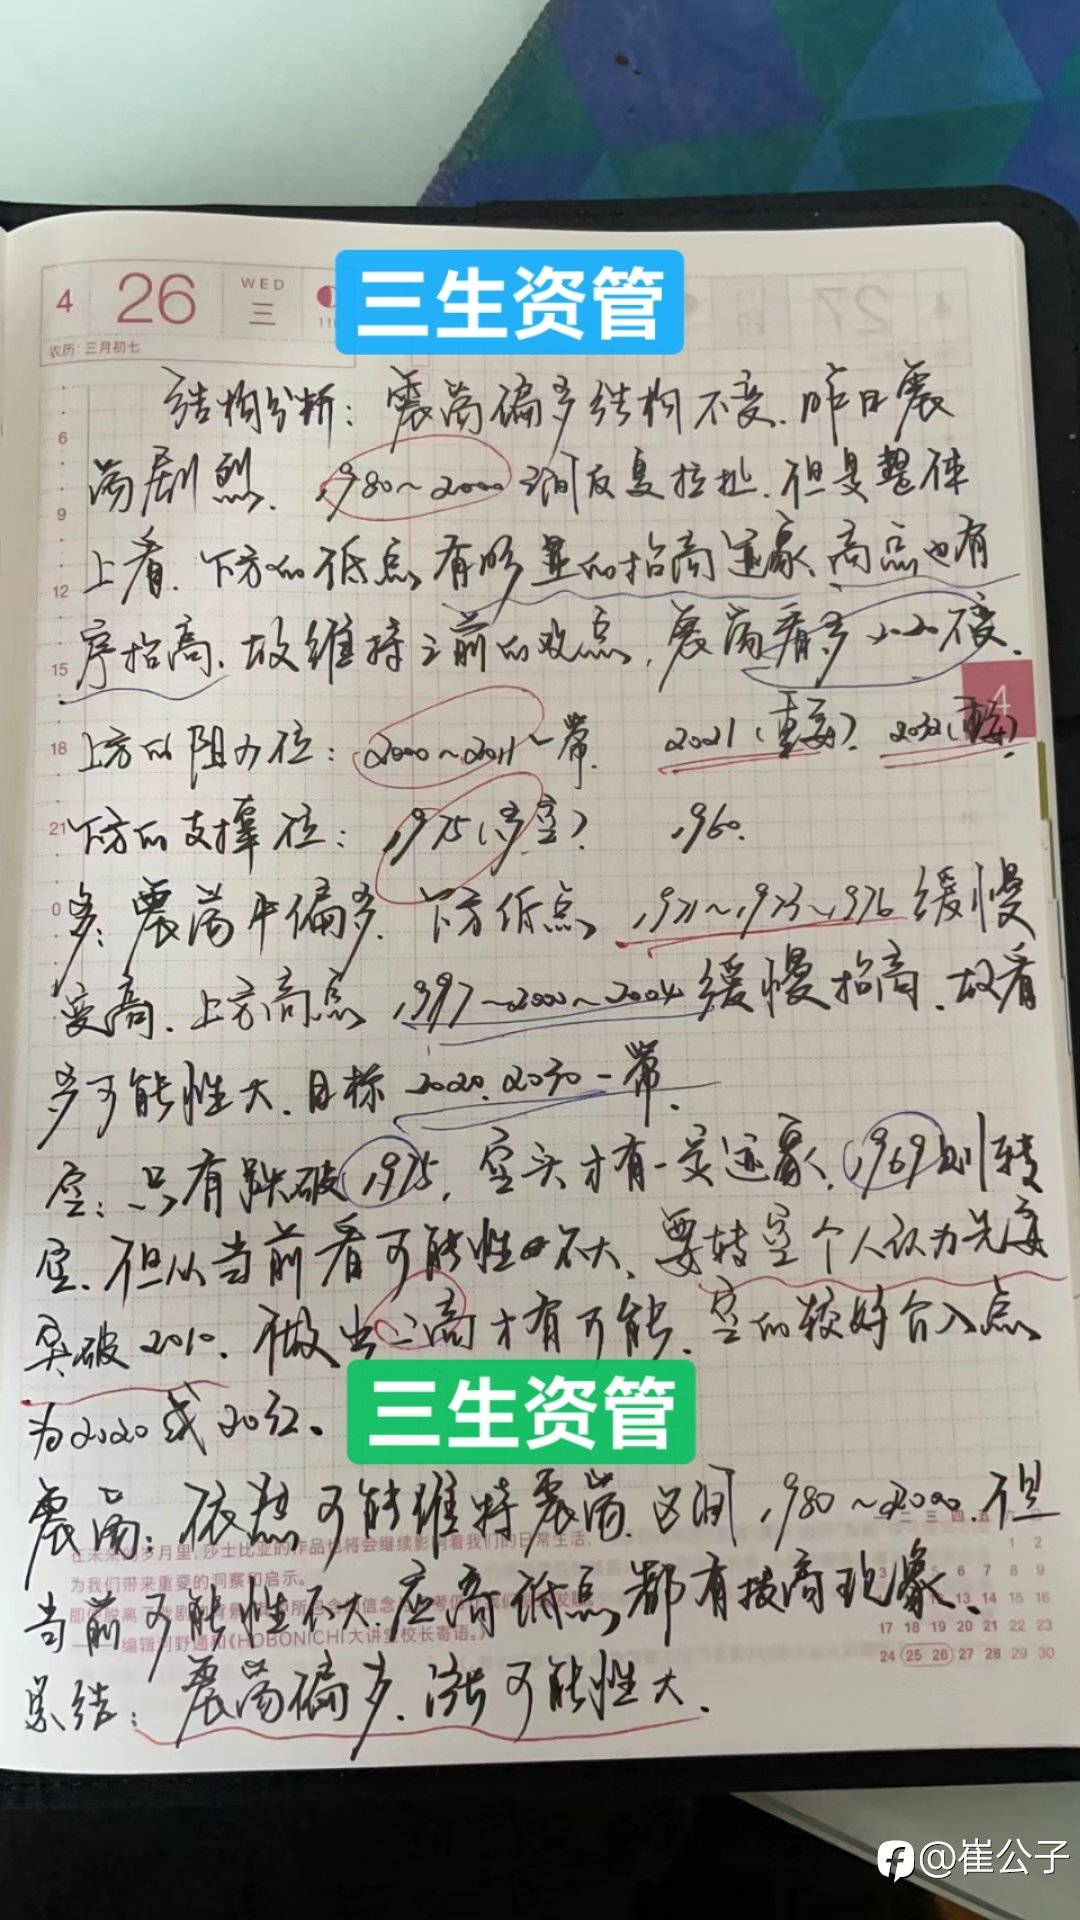 三生资管
4 26 WED 三
农历：三月初七
结构分析：震荡偏多结构不变.昨日震
荡剧烈、1980～2000间反复拉扯.但是整体
上看.下方的低点有明显的抬高迹象、高点也有
序抬高、故维持之前的观点,震荡看多2020不变.
上方的阻力位：2000～2011一带. 2021(重要). 2032(重要)
下方的支撑位：1975(多空) 1960.
多：震荡中偏多.下方低点 1971～1973～1976缓慢
变高.上方高点1997～2000～2004缓慢抬高.故看
多可能性大.目标2020.2030一带.
空：只有跌破1975,空头才有一定迹象,1969则转
空.但从当前看可能性不大、要转空个人认为先要
突破2010.做出二高才有可能.空的较好介入点
为2020或
三生资管
震荡：依然可能维持震荡.区间1980～2000.但
当前可能性不大应高低点都有拔高现象.
在未来的岁月里,莎士比亚的作品也将会继续影响着我们的日常生活,
为我们带来重要的洞察和启示。
编辑河野通和《HOBONICHI大讲堂校长寄语。》
总结：震荡偏多.涨可能性大.
6
9
12
15
18
21
0
4
27
三 四 五
1 2
3 6 7 8 9
13 14 15 16
17 18 19 20 21 22 23
24 25 26 27 28 29 30
@崔公子